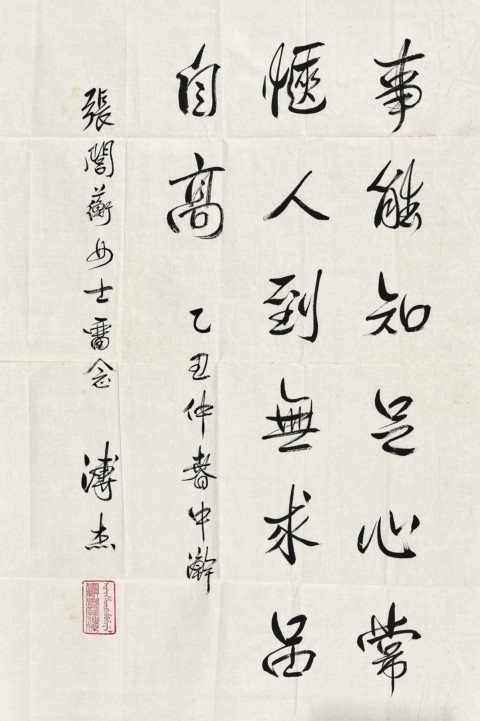 事能知足心常
愜人到無求品
自高 乙丑仲春中澣
張誾蘅女士留念 溥杰